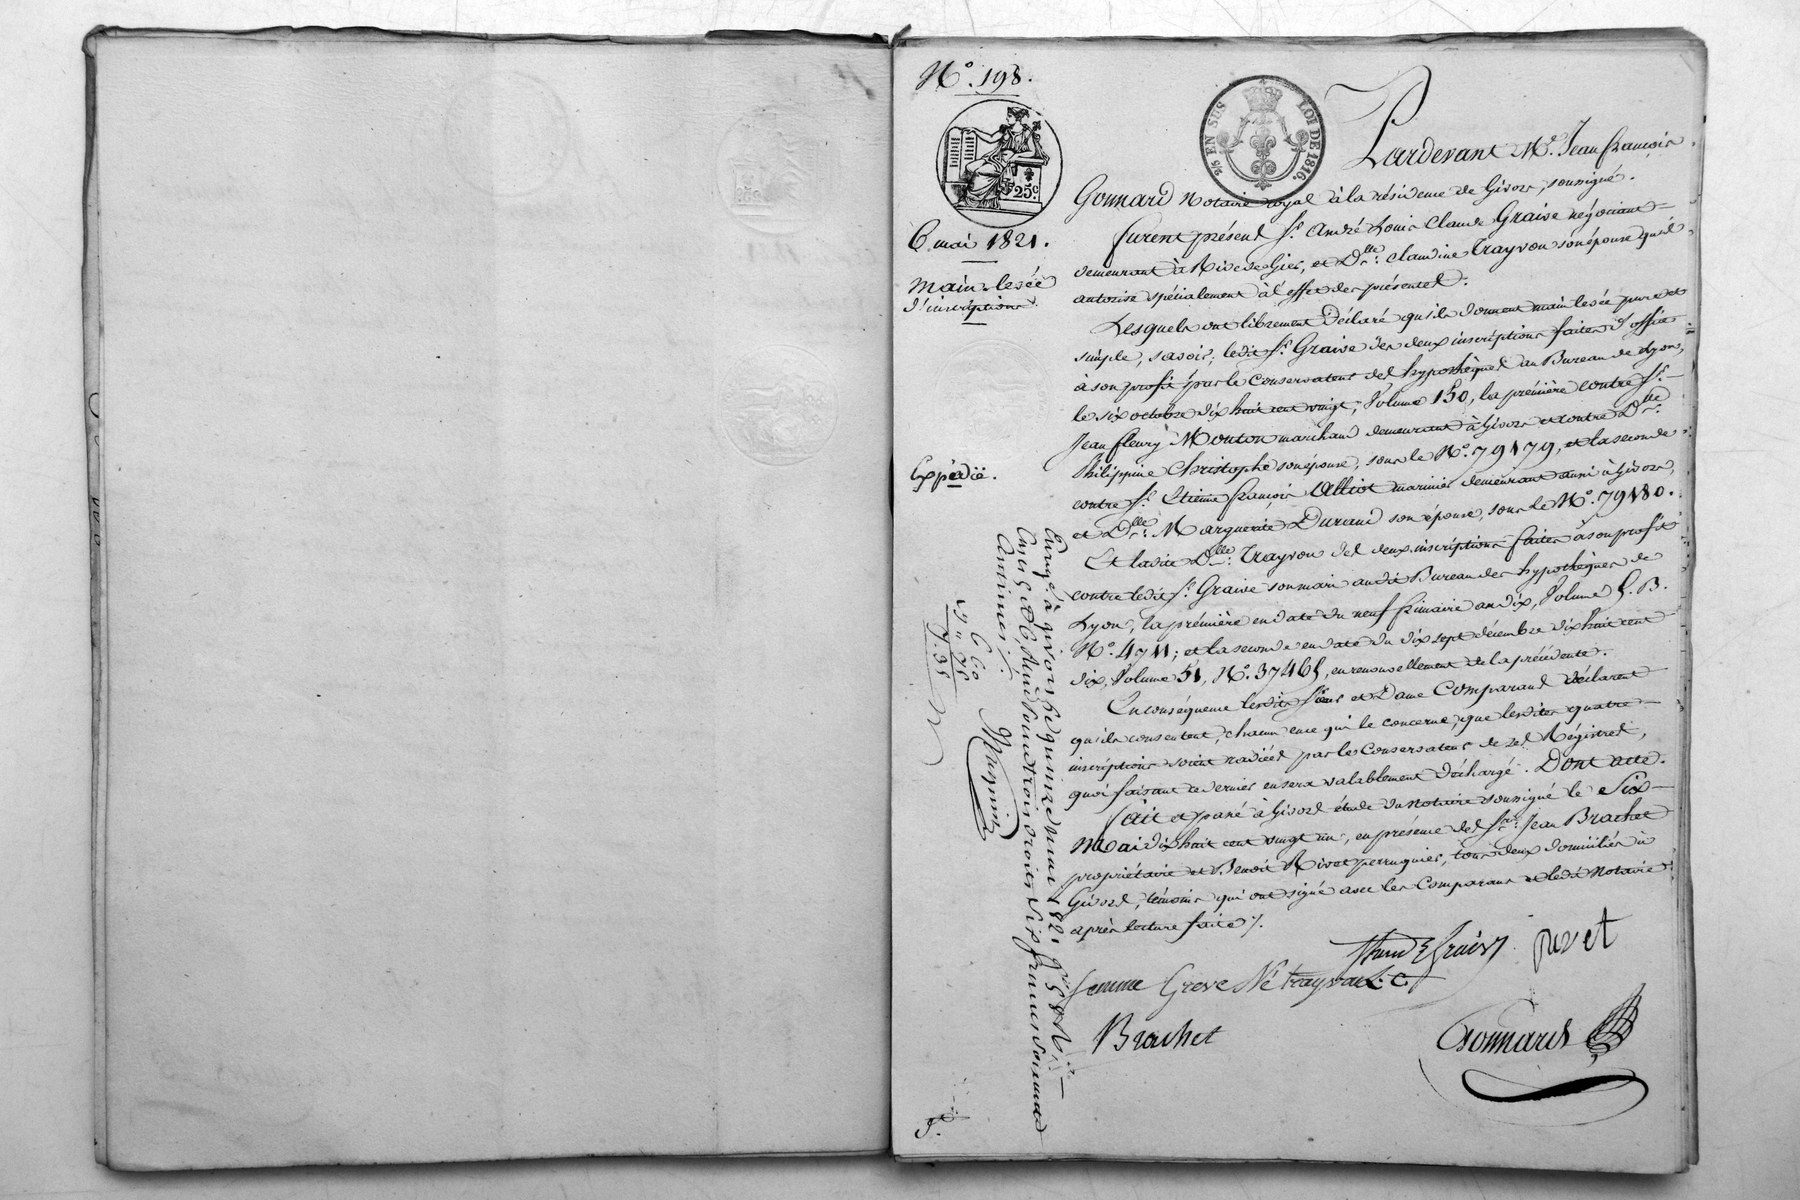 N.° 198.
25 EN SUS LOI DE 1816.
25c
6. mai 1821.
Main-levée
d'inscriptions.
Expédié.
Pardevant Me. Jean françois
Gonnard Notaire royal à la résidence de Givors, soussigné.
furent présens Sr. André Louis Claude Graive négociant
demeurant à Rivedegier, et Dlle. Claudine Trayvou son épouse qu'il
autorise spécialement à l'effet des présentes.
Lesquels ont librement déclaré qu'ils donnent main levée pure et
simple, savoir; ledit Sr. Graive des deux inscriptions faites d'office
à son profit par le Conservateur des hypothèques au Bureau de Lyon,
le six octobre dix huit cent vingt, Volume 150, la première contre Sr.
Jean fleury Mouton marchand demeurant à Givors et contre Dlle.
Philippine Christophe son épouse, sous le N.° 79179, et la seconde
contre Sr. Etienne françois Alliot marinier demeurant aussi à Givors,
et Dlle. Marguerite Durand son épouse, sous le N.° 79180.
Et ladite Dlle. Trayvou des deux inscriptions faites à son profit
contre ledit Sr. Graive son mari audit Bureau des hypothèques de
Lyon, la première en date du neuf frimaire an dix, Volume 5. B.
N.° 4711; et la seconde en date du dix sept décembre dix huit cent
six, Volume 51, N.° 37465, en renouvellement de la précédente.
En conséquence lesdits Sieur et Dame Comparans déclarent
qu'ils consentent, chacun en ce qui le concerne, que lesdites quatre
inscriptions soient radiées par le Conservateur de ses Régistres,
quoi faisant ce dernier en sera valablement déchargé. Dont acte.
fait et passé à Givors étude du notaire soussigné le Six
Mai dix huit cent vingt un, en présence des Srs. Jean Brachet
propriétaire et Benoit Rivet perruquier, tous deux domiciliés à
Givors, témoins qui ont signé avec les Comparans et ledit Notaire
après lecture faite ./.
Rivet
femme Greve Né trayvou L. C
Brachet
Gonnard
Enregé. à givors le quinze mai 1821 fo. 58 Vo.
Cases 5 et 6. Reçu pour trois droits six francs soixante
Centimes
6 60
" 75
7. 35